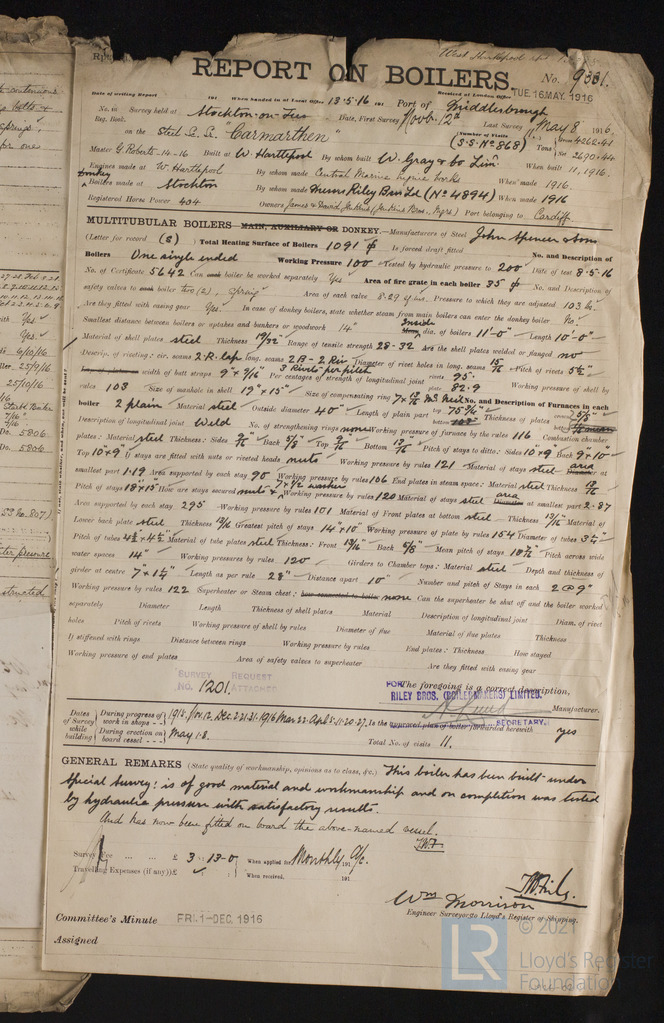 REPORT ON BOILERS.
No. 9331.
Date of writing Report 191 When handed in at Local Office 13·5·16 191 Port of Middlesbrough
Received at London Office TUE. 16 MAY. 1916
No. in Reg. Book. Survey held at Stockton-on-Tees Date, First Survey Nov. 12th Last Survey May 8 1916
on the Steel S.S. "Carmarthen" (Number of Visits) (S.S. No 868) Tons Gross 4262.41 Net 2690.44
Master G. Roberts-14-16 Built at W. Hartlepool By whom built W. Gray & Co Lim. When built 11, 1916.
Engines made at W. Hartlepool By whom made Central Marine Engine Works When made 1916.
Donkey Boilers made at Stockton By whom made Messrs Riley Bros Ltd (No 4894) When made 1916
Registered Horse Power 404 Owners James & David Jenkins (Jenkins Bros. Mgrs) Port belonging to Cardiff
MULTITUBULAR BOILERS MAIN, AUXILIARY OR DONKEY.—Manufacturers of Steel John Spencer & Sons
(Letter for record (S) ) Total Heating Surface of Boilers 1091 ф Is forced draft fitted No. and Description of
Boilers One single ended Working Pressure 100 Tested by hydraulic pressure to 200 Date of test 8·5·16
No. of Certificate 5642 Can each boiler be worked separately Yes Area of fire grate in each boiler 35 ф No. and Description of
safety valves to each boiler two (2), Spring Area of each valve 8·29 Pressure to which they are adjusted 103 lb
Are they fitted with easing gear Yes. In case of donkey boilers, state whether steam from main boilers can enter the donkey boiler No.
Smallest distance between boilers or uptakes and bunkers or woodwork 14" Inside dia. of boilers 11'-0" Length 10'-0"
Material of shell plates steel Thickness 19/32 Range of tensile strength 28-32 Are the shell plates welded or flanged no
Descrip. of riveting: cir. seams 2 R. Lap long. seams 2 B - 2 Riv Diameter of rivet holes in long. seams 15/16 Pitch of rivets 5½"
Lap of plates or width of butt straps 9" x 9/16" 3 Rivets per pitch Per centages of strength of longitudinal joint rivets 95. plate 82.9 Working pressure of shell by
rules 103 Size of manhole in shell 19" x 15" Size of compensating ring McNeil No. and Description of Furnaces in each
boiler 2 plain Material steel Outside diameter 40" Length of plain part top 75¾" bottom Thickness of plates
Description of longitudinal joint Weld No. of strengthening rings none Working pressure of furnace by the rules 116 Combustion chamber
plates: Material steel Thickness: Sides 9/16 Back 5/8 Top 9/16 Bottom 13/16 Pitch of stays to ditto: Sides 10 x 9 Back 9 x 10
Top 10 x 9 If stays are fitted with nuts or riveted heads nuts Working pressure by rules 121 Material of stays steel area at
smallest part 1·19 Area supported by each stay 90 Working pressure by rules 106 End plates in steam space: Material steel Thickness
Pitch of stays 18" x 15" How are stays secured nuts & washers Working pressure by rules 120 Material of stays steel area at smallest part 2·87
Area supported by each stay 295 Working pressure by rules 101 Material of Front plates at bottom steel Thickness 13/16 Material of
Lower back plate steel Thickness 13/16 Greatest pitch of stays 14" x 10" Working pressure of plate by rules 154 Diameter of tubes 3¼"
Pitch of tubes 4½ x 4½ Material of tube plates steel Thickness: Front 13/16 Back 5/8 Mean pitch of stays Pitch across wide
water spaces 14" Working pressures by rules 120 Girders to Chamber tops: Material steel Depth and thickness of
girder at centre 7" x 1¼" Length as per rule Distance apart 10" Number and pitch of Stays in each 2 @ 9"
Working pressure by rules 122 Superheater or Steam chest: how connected to boiler none Can the superheater be shut off and the boiler worked
separately Diameter Length Thickness of shell plates Material Description of longitudinal joint Diam. of rivet
holes Pitch of rivets Working pressure of shell by rules Diameter of flue Material of flue plates Thickness
If stiffened with rings Distance between rings Working pressure by rules End plates: Thickness How stayed
Working pressure of end plates Area of safety valves to superheater Are they fitted with easing gear
SURVEY REQUEST
NO. 1201 ATTACHED
The foregoing is a correct description,
FOR RILEY BROS. (BOILERMAKERS) LIMITED. Manufacturer.
SECRETARY.
Dates of Survey while building
During progress of work in shops - - 1915. Nov. 12. Dec. 22. 31. 1916 Mar. 22. Apl. 5. 11. 20. 27. Is the approved plan of boiler forwarded herewith yes
During erection on board vessel - - - May 1. 8. Total No. of visits 11.
GENERAL REMARKS (State quality of workmanship, opinions as to class, &c.) This boiler has been built under
special survey: is of good material and workmanship and on completion was tested
by hydraulic pressure with satisfactory results.
And has now been fitted on board the above-named vessel.
Survey Fee ... ... £ 3 : 13 - 0 When applied for, Monthly A/c. 191
Travelling Expenses (if any) £ When received, 191
Wm Morrison
Engineer Surveyor to Lloyd's Register of Shipping.
Committee's Minute FRI. 1-DEC. 1916
Assigned
LR
© 2021
Lloyd's Register
Foundation